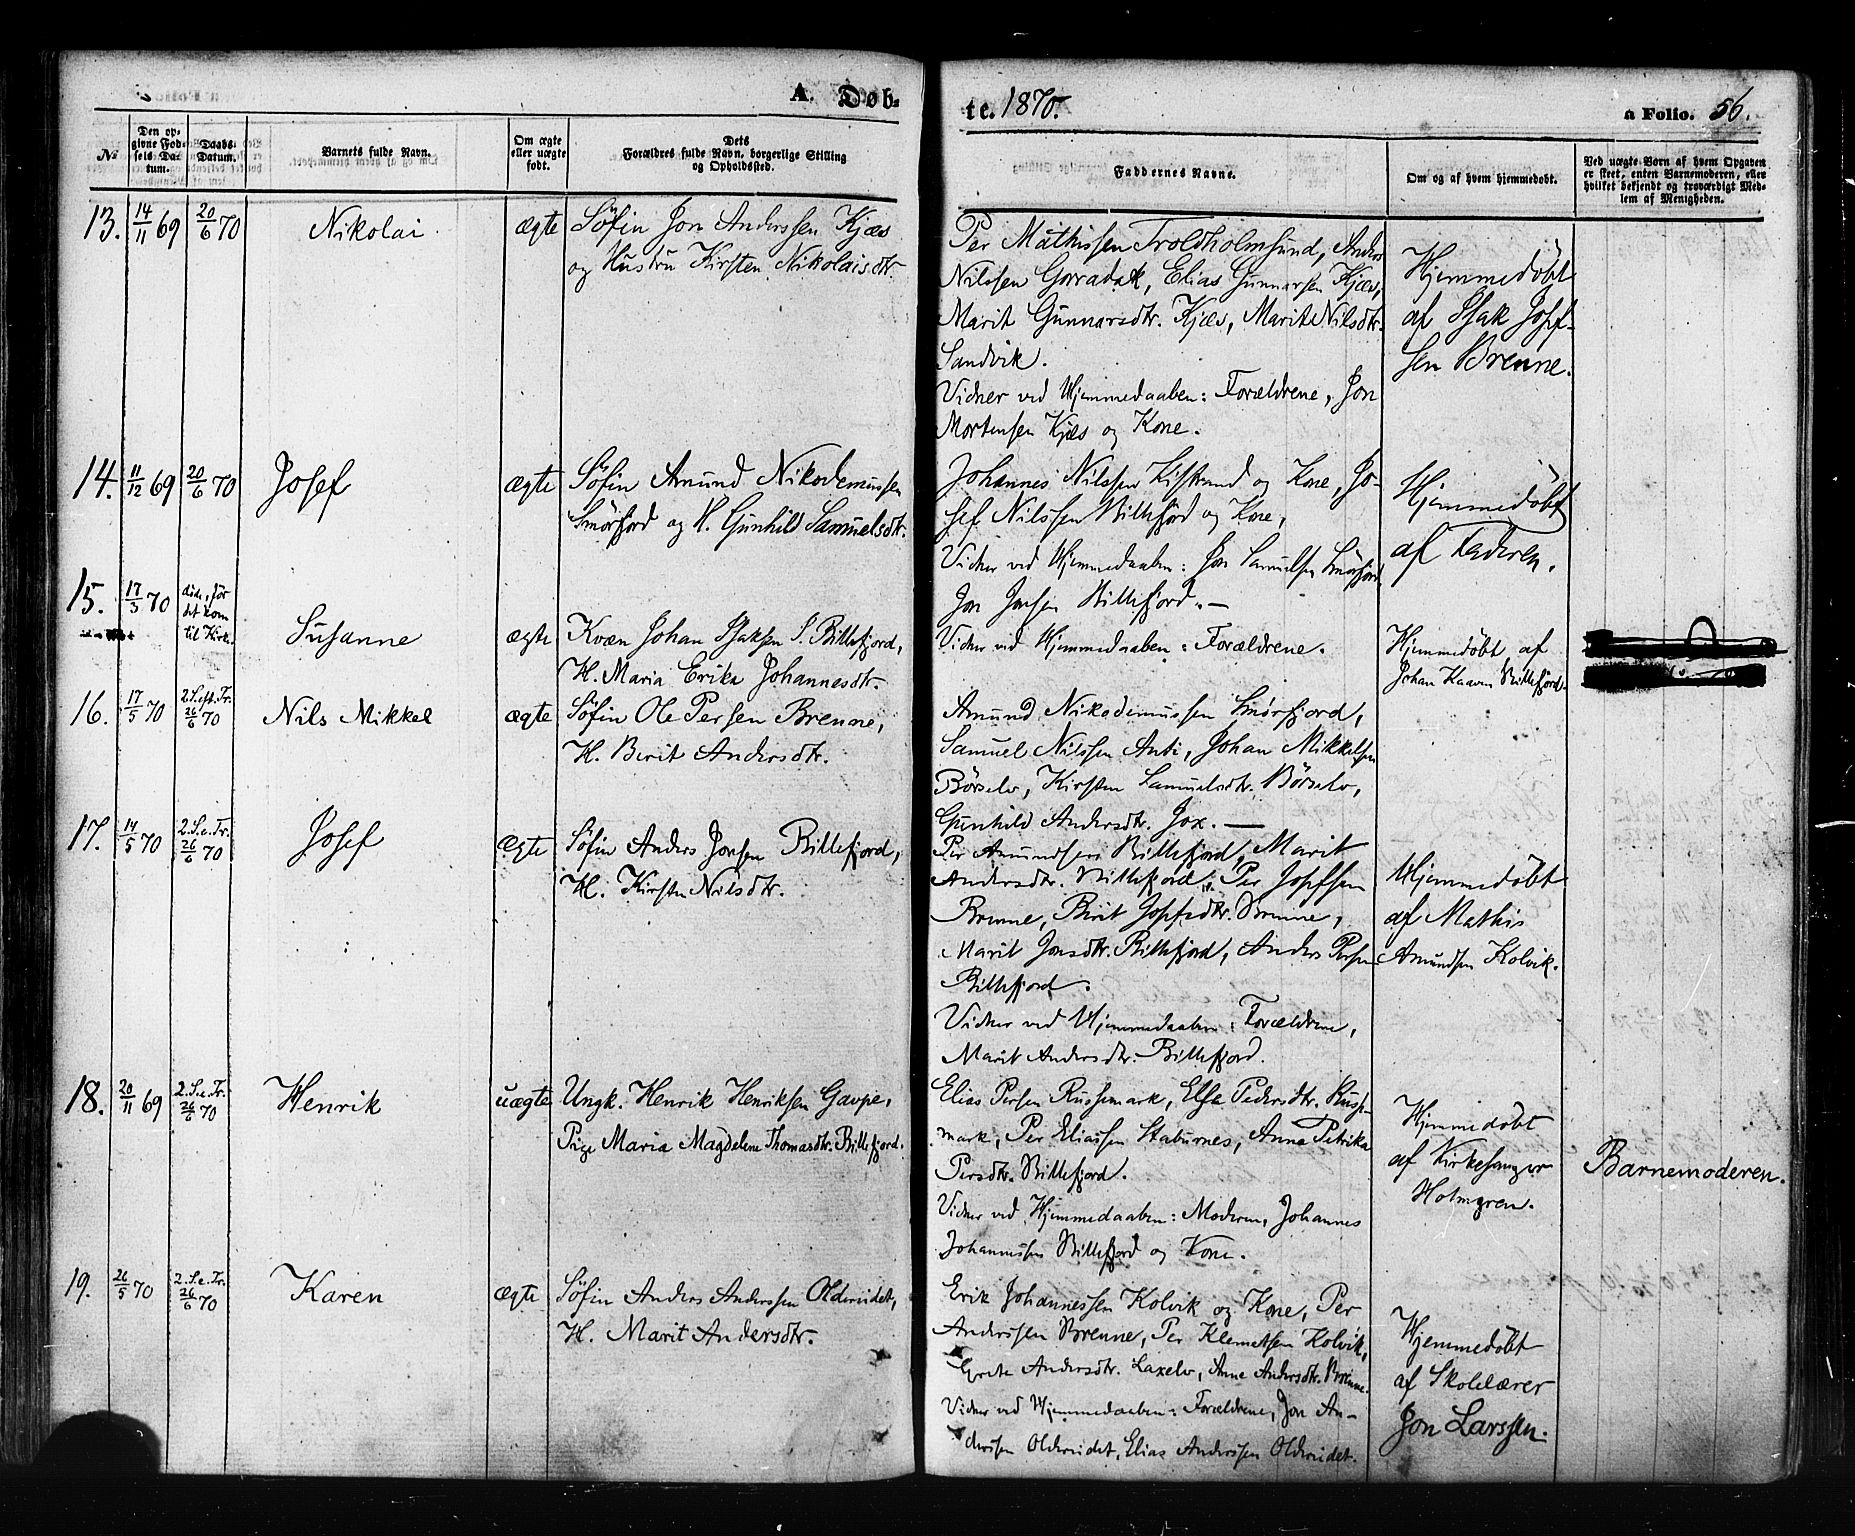 A. Døb-
te. 1870.
a Folio. 56.
No
Den op-
givne Fød-
sels Da-
tum.
Daabs-
Datum.
Barnets fulde Navn.
Om ægte
eller uægte
født.
Dets
Forældres fulde Navn, borgerlige Stilling
og Opholdssted.
Faddernes Navne.
Om og af hvem hjemmedøbt.
Ved uægte Born af hvem Opgaven
er skeet, enten Barnemoderen, eller
hvilket bekjendt og troværdigt Med-
lem af Menigheden.
13. 14/11 69 20/6 70 Nikolai ægte
Søfin Jon Anderssen Kjæs
og Hustru Kirsten Nikolaisdtr.
Per Mathissen Troldholmsund, Anders
Nilssen Gorradak, Elias Gunnarsen Kjæs,
Marit Gunnarsdtr. Kjæs, Marit Nilsdtr.
Sandvik.
Vidner ved Hjemmedaaben: Forældrene, Jon
Mortensen Kjæs og Kone.
Hjemmedøbt
af Isak Josef-
sen Brenne.
14. 11/12 69 20/6 70 Josef ægte
Søfin Amund Nikodemussen
Smörfjord og H. Gunhild Samuelsdtr.
Johannes Nilssen Kistrand og Kone, Jo-
sef Nilssen Billefjord og Kone,
Vidner ved Hjemmedaaben: Jon Samuelsen Smörfjord
Jon Jonsen Billefjord. —
Hjemmedöbt
af Faderen.
15. 17/3 70 døde, før
det kom
til Kirke. Susanne ægte
Kvæn Johan Isaksen S. Billefjord,
H. Maria Erika Johannesdtr.
Vidner ved Hjemmedaaben: Forældrene.
Hjemmedøbt af
Johan Kaaven Billefjord.
16. 17/5 70 2. S. eft. Tr.
26/6 70 Nils Mikkel ægte
Søfin Ole Persen Brenne,
H. Berit Andersdtr.
Amund Nikodemussen Smörfjord,
Samuel Nilssen Anti, Johan Mikkelsen
Börselv, Kirsten Samuelsdtr. Börselv,
Gunhild Andersdtr. Jox. —
17. 14/5 70 2. S. e. Tr.
26/6 70 Josef ægte
Søfin Anders Jonsen Billefjord,
H. Kirsten Nilsdtr.
Per Amundsen Billefjord, Marit
Andersdtr. Billefjord, Per Josefsen
Brenne, Birit Josefsdtr. Brenne,
Marit Jonsdtr. Billefjord, Anders Persen
Billefjord.
Vidner ved Hjemmedaaben: Forældrene,
Marit Andersdtr. Billefjord.
Hjemmedøbt
af Mathis
Amundsen Kolvik.
18. 20/11 69 2. S. e. Tr.
26/6 70 Henrik uægte
Ungk. Henrik Henriksen Gavpe,
Pige Maria Magdelene Thomasdtr. Billefjord.
Elias Persen Russemark, Else Pedersdtr. Russe-
mark, Per Eliassen Staburnes, Anna Petrika
Persdtr. Billefjord.
Vidner ved Hjemmedaaben: Moderen, Johannes
Johannessen Billefjord og Kone.
Hjemmedøbt
af Kirkesanger
Holmgren.
Barnemoderen.
19. 26/5 70 2. S. e. Tr.
26/6 70 Karen ægte
Søfin Anders Anderssen Oldereidet,
H. Marit Andersdtr.
Erik Johannessen Kolvik og Kone, Per
Anderssen Brenne, Per Klemetsen Kolvik,
Grete Andersdtr. Laxelv, Anne Andersdtr. Brenne.
Vidner ved Hjemmedaaben: Forældrene, Jon An-
derssen Oldereidet, Elias Anderssen Oldereidet.
Hjemmedøbt
af Skolelærer
Jon Larssen.